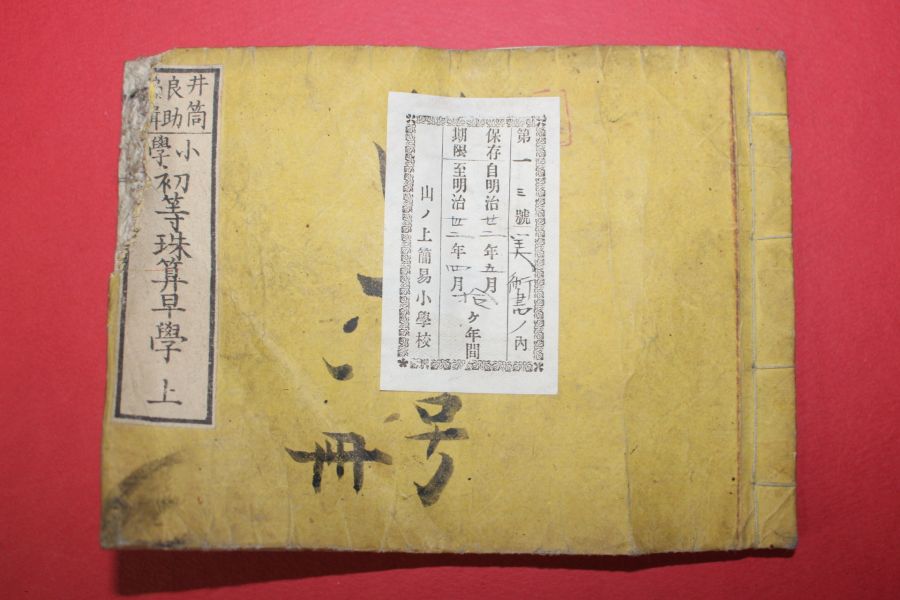 井筒
良助
小學
初等珠算早學 上
第一三號 美術書ノ内
保存自明治廿二年五月
期限至明治 年四月 拾ケ年間
山ノ上簡易小學校
号
冊